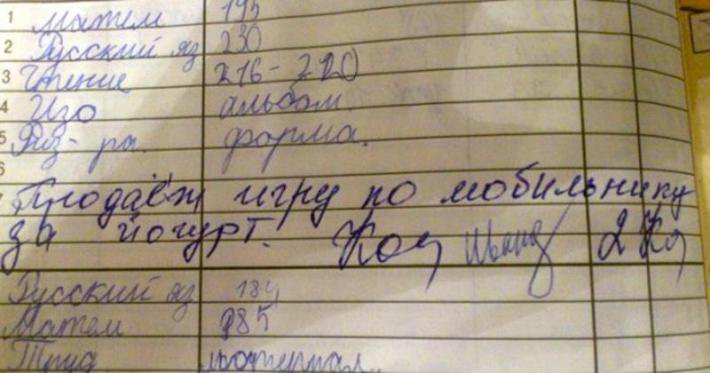 1 Матем 195
2 Русский яз 230
3 Чтение 216-220
4 Изо альбом
5 Физ-ра. форма.
6
Продаёт игру по мобильнику
за йогурт.
Русский яз 184
Матем 985
Труд